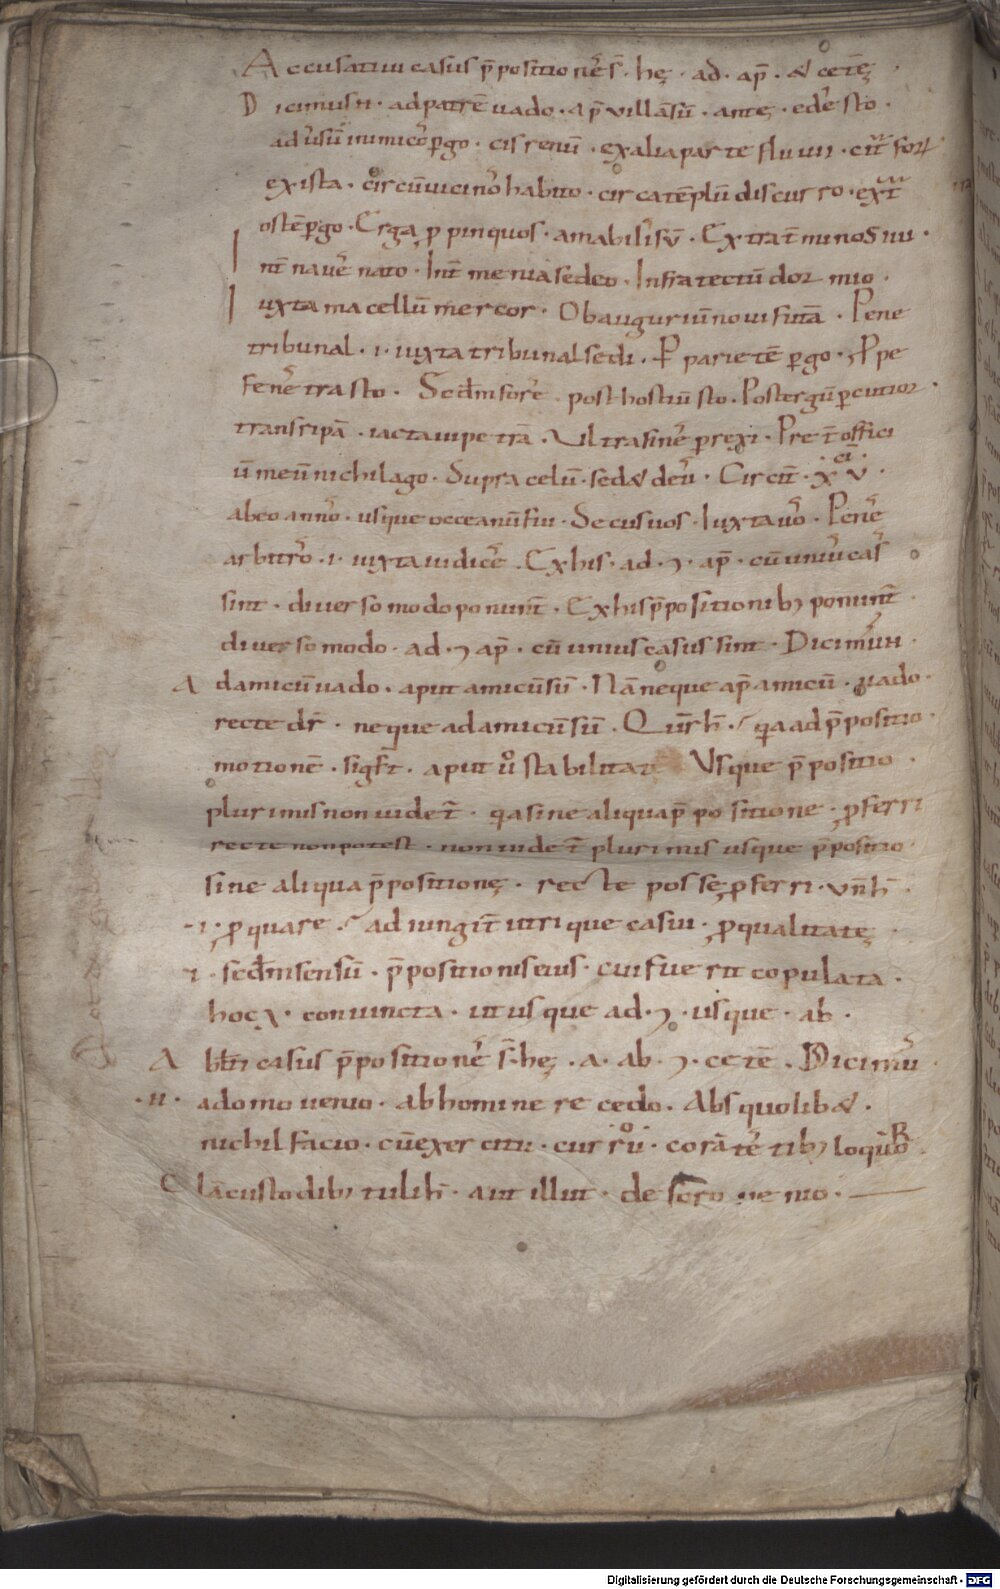 Accusatiui casus p̄positionēs s̄ · hę · ad · ap̄ · & ceteᷓ ·
Dicimus n̄ · ad patrē uado · ap̄ villā sū · ante ędes sto ·
aduͥsū inimicoͦ ꝑgo · cis renū · ex alia parte fluuii · cit̄ forū
ex ista · circū uicinoͦ habito · circa tēplū discurro · ext̄
ostē ꝑgo · Erga ꝓpinquos · amabilis sū · Extra t̄minos sū ·
int̄ naues nato · Int̄ menia sedeo · Infra tectū dormio ·
iuxta macellū mercor · Ob auguriū noui futā · Pene
tribunal · i · iuxta tribunal sedi · Ꝑ parietē ꝑgo · Ꝓpe
fenestra sto · Scd̄m fores · post hostiū sto · Post ergū ꝑcutior ·
trans ripā · iacta ui petrā · Ultra fines ꝑrexi · Pret̄ offici
ū meū nichil ago · Supra celū · sed& deus · Circit̄ · xv ·
abeo annos · usque occeanū fui · Secus uos · Iuxta uos · Penes
arbitros · i · iuxta iudices · Ex his · ad · ⁊ · ap̄ · cū unius cas
sint · diuerso modo ponunt̄ · Ex his p̄positionibꝫ ponunt̄ ·
diuerso modo · ad · ⁊ ap̄ · cū unius casus sint · Dicimus n̄ ·
Ad amicū uado · aput amicū sū · Nā neque ap̄ amicū · uado ·
recte dr̄ · neque ad amicū sū · Qur̄ h̄ · qa ad p̄positio ·
motionē · sigf̄t · aput uͦ stabilitatē Usque p̄positio ·
plurimis non uidet̄ · qa sine aliqua p̄positione · ꝓferri
recte non potest · non uidet̄ plurimis usque p̄positio ·
sine aliqua p̄positione · recte posse ꝓferri · un̄ h̄ ·
· i · ꝓ quare · adiungit̄ utrique casui · ꝓ qualitate
i · scd̄m sensū · p̄positionis eius · cui fuerit copulata ·
hoc ē · coniuncta · ut usque ad · ⁊ · usque · ab ·
Abl̄ti casus p̄positiones s̄ · hę · a · ab · ⁊ · ceteᷓ · Dicimus
· n̄ · a domo uenio · ab homine recedo · Absquolib& ·
nichil facio · cū exercitu · curru · corā testibꝫ loquor ·
Clā custodibꝫ tuli h̄ · aut illut · de foro uenio ·